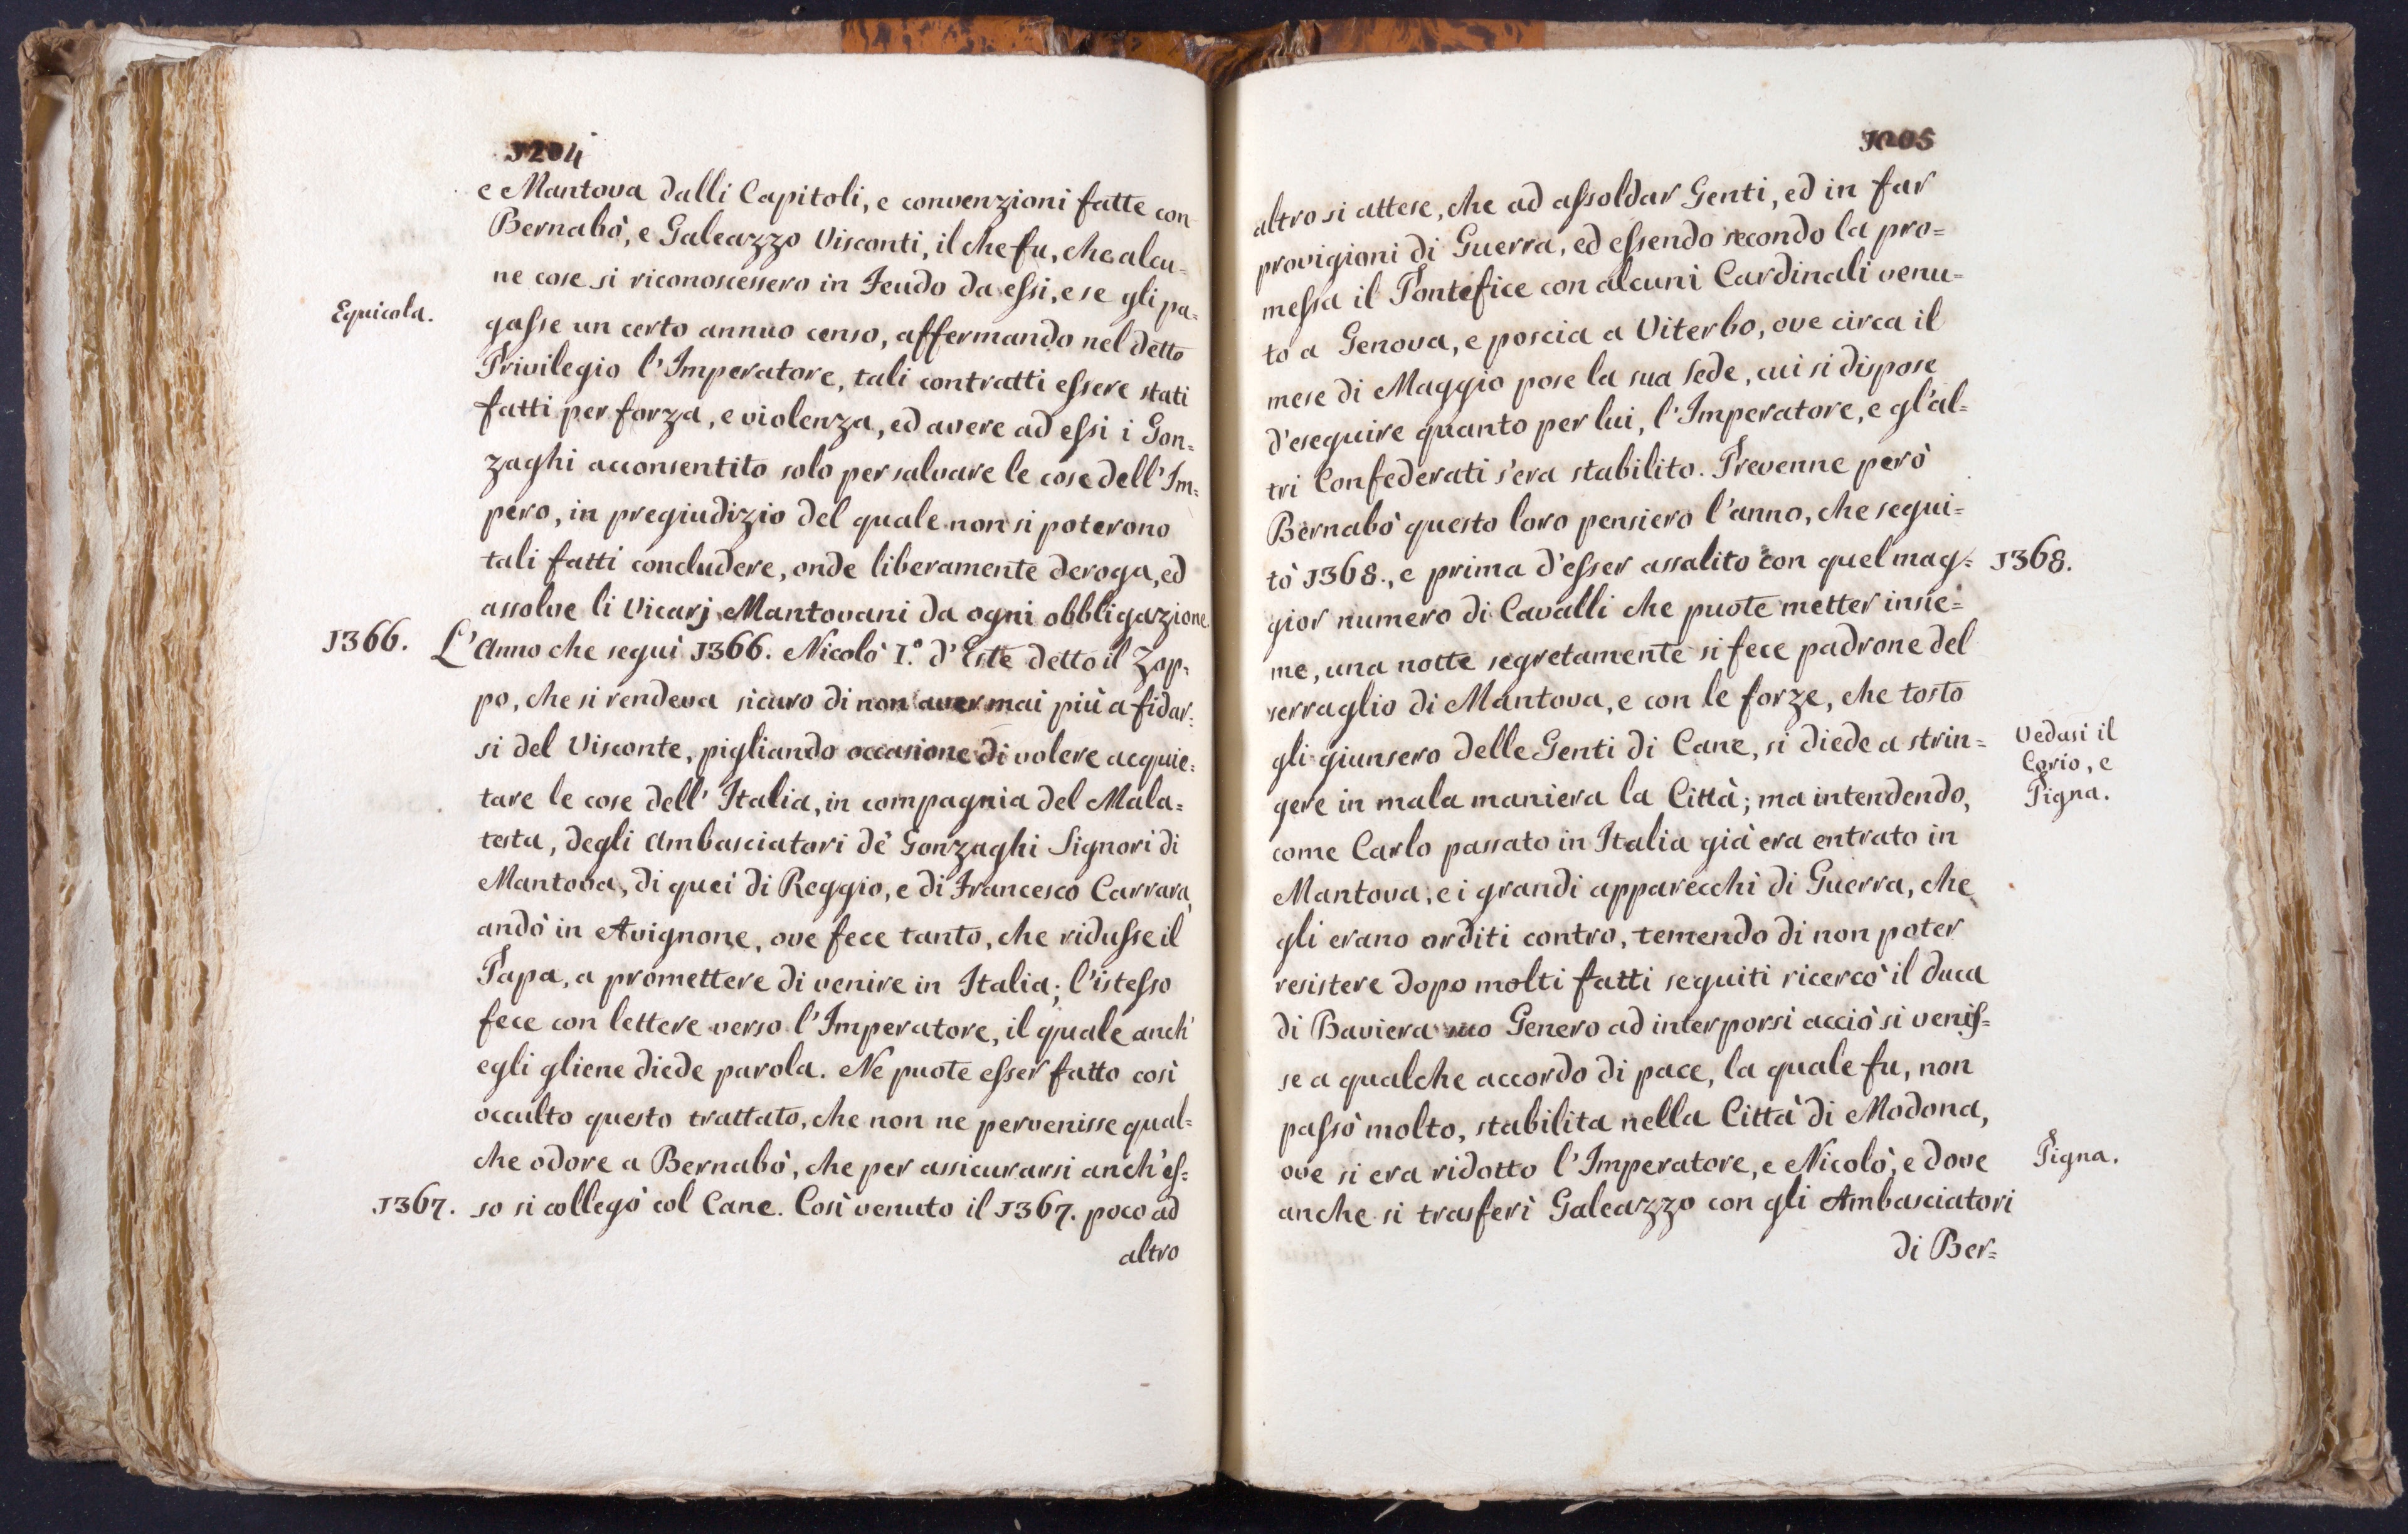 1204
e Mantova dalli Capitoli, e convenzioni fatte con
Bernabò, e Galeazzo Visconti, il che fu, che alcu=
ne cose si riconoscessero in Feudo da essi, e se gli pa=
Equicola.
gasse un certo annuo censo, affermando nel detto
Privilegio l'Imperatore, tali contratti essere stati
fatti per forza, e violenza, ed avere ad essi i Gon=
zaghi acconsentito solo per salvare le cose dell'Im=
pero, in pregiudizio del quale non si poterono
tali fatti concludere, onde liberamente deroga, ed
assolve li Vicarj Mantovani da ogni obbligazione.
1366.
L'Anno che seguì 1366. Nicolò I.º d'Este detto il Zop=
po, che si rendeva sicuro di non aver mai più a fidar=
si del Visconte, pigliando occasione di volere acquie=
tare le cose dell' Italia, in compagnia del Mala=
testa, degli Ambasciatori de' Gonzaghi Signori di
Mantova, di quei di Reggio, e di Francesco Carrara,
andò in Avignone, ove fece tanto, che ridusse il
Papa, a promettere di venire in Italia; l'istesso
fece con lettere verso l'Imperatore, il quale anch'
egli gliene diede parola. Ne puote esser fatto così
occulto questo trattato, che non ne pervenisse qual=
che odore a Bernabò, che per assicurarsi anch'es=
1367.
so si collegò col Cane. Così venuto il 1367. poco ad
altro
1205
altro si attese, che ad assoldar Genti, ed in far
provigioni di Guerra, ed essendo secondo la pro=
messa il Pontefice con alcuni Cardinali venu=
to a Genova, e poscia a Viterbo, ove circa il
mese di Maggio pose la sua Sede, cui si dispose
d'eseguire quanto per lui, l'Imperatore, e gl'al=
tri Confederati s'era stabilito. Prevenne però
Bernabò questo loro pensiero l'anno, che segui=
tò 1368., e prima d'esser assalito con quel mag=
1368.
gior numero di Cavalli che puote metter insie=
me, una notte segretamente si fece padrone del
serraglio di Mantova, e con le forze, che tosto
gli giunsero delle Genti di Cane, si diede a strin=
Vedasi il
Corio, e
Pigna.
gere in mala maniera la Città; ma intendendo,
come Carlo passato in Italia già era entrato in
Mantova; e i grandi apparecchi di Guerra, che
gli erano orditi contro, temendo di non poter
resistere dopo molti fatti seguiti ricercò il Duca
di Baviera suo Genero ad interporsi acciò si venis=
se a qualche accordo di pace, la quale fu, non
passò molto, stabilita nella Città di Modona,
ove si era ridotto l'Imperatore, e Nicolò, e dove
Pigna.
anche si trasferì Galeazzo con gli Ambasciatori
di Ber=